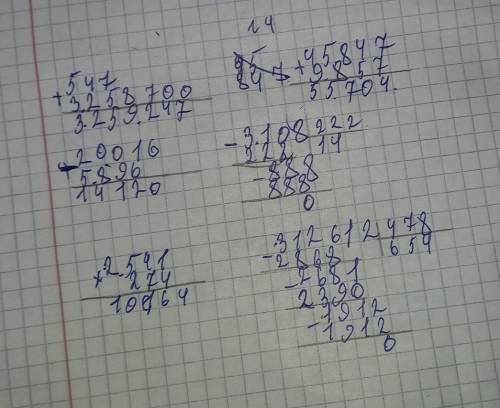 14
547
+ 3.258 700
3.259.247
20016
- 5896
14120
2.541
× 274
10964
+ 45847
9857
55.704.
- 3.108 222
222 14
- 888
888
0
- 312612 478
2868 654
- 2581
2390
- 1912
1912
0